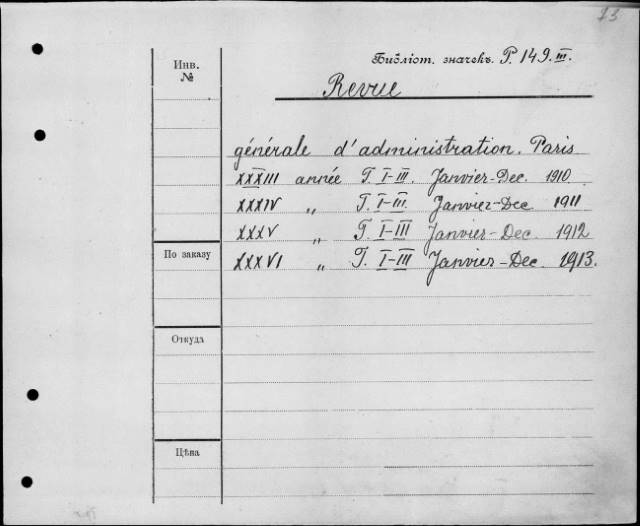 13
Инв.
№
Библіот. значекъ. P. 149.III.
Revue
générale d'administration. Paris
XXXIII année T. I-III. Janvier-Dec. 1910
XXXIV „ T. I-III. Janvier-Dec 1911
XXXV „ T. I-III Janvier-Dec. 1912
XXXVI „ T. I-III Janvier-Dec. 1913.
По заказу
Откуда
Цѣна